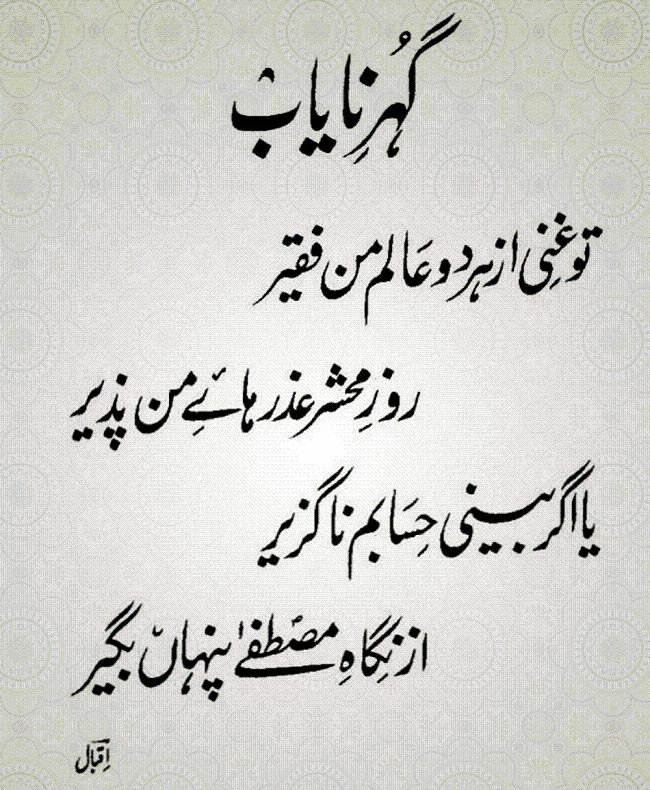 گہُرِ نایاب
تو غنِی از ہر دو عَالم من فقیر
روزِ محشر عذر ہائےِ من پذیر
یا اگر بینی حِسَابم ناگزیر
از نگاہِ مصطفےٰؐ پنہاں بگیر
اِقبالؔ